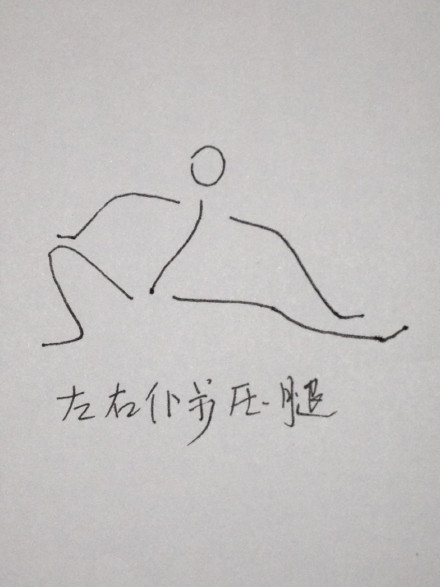 左右仆步压腿